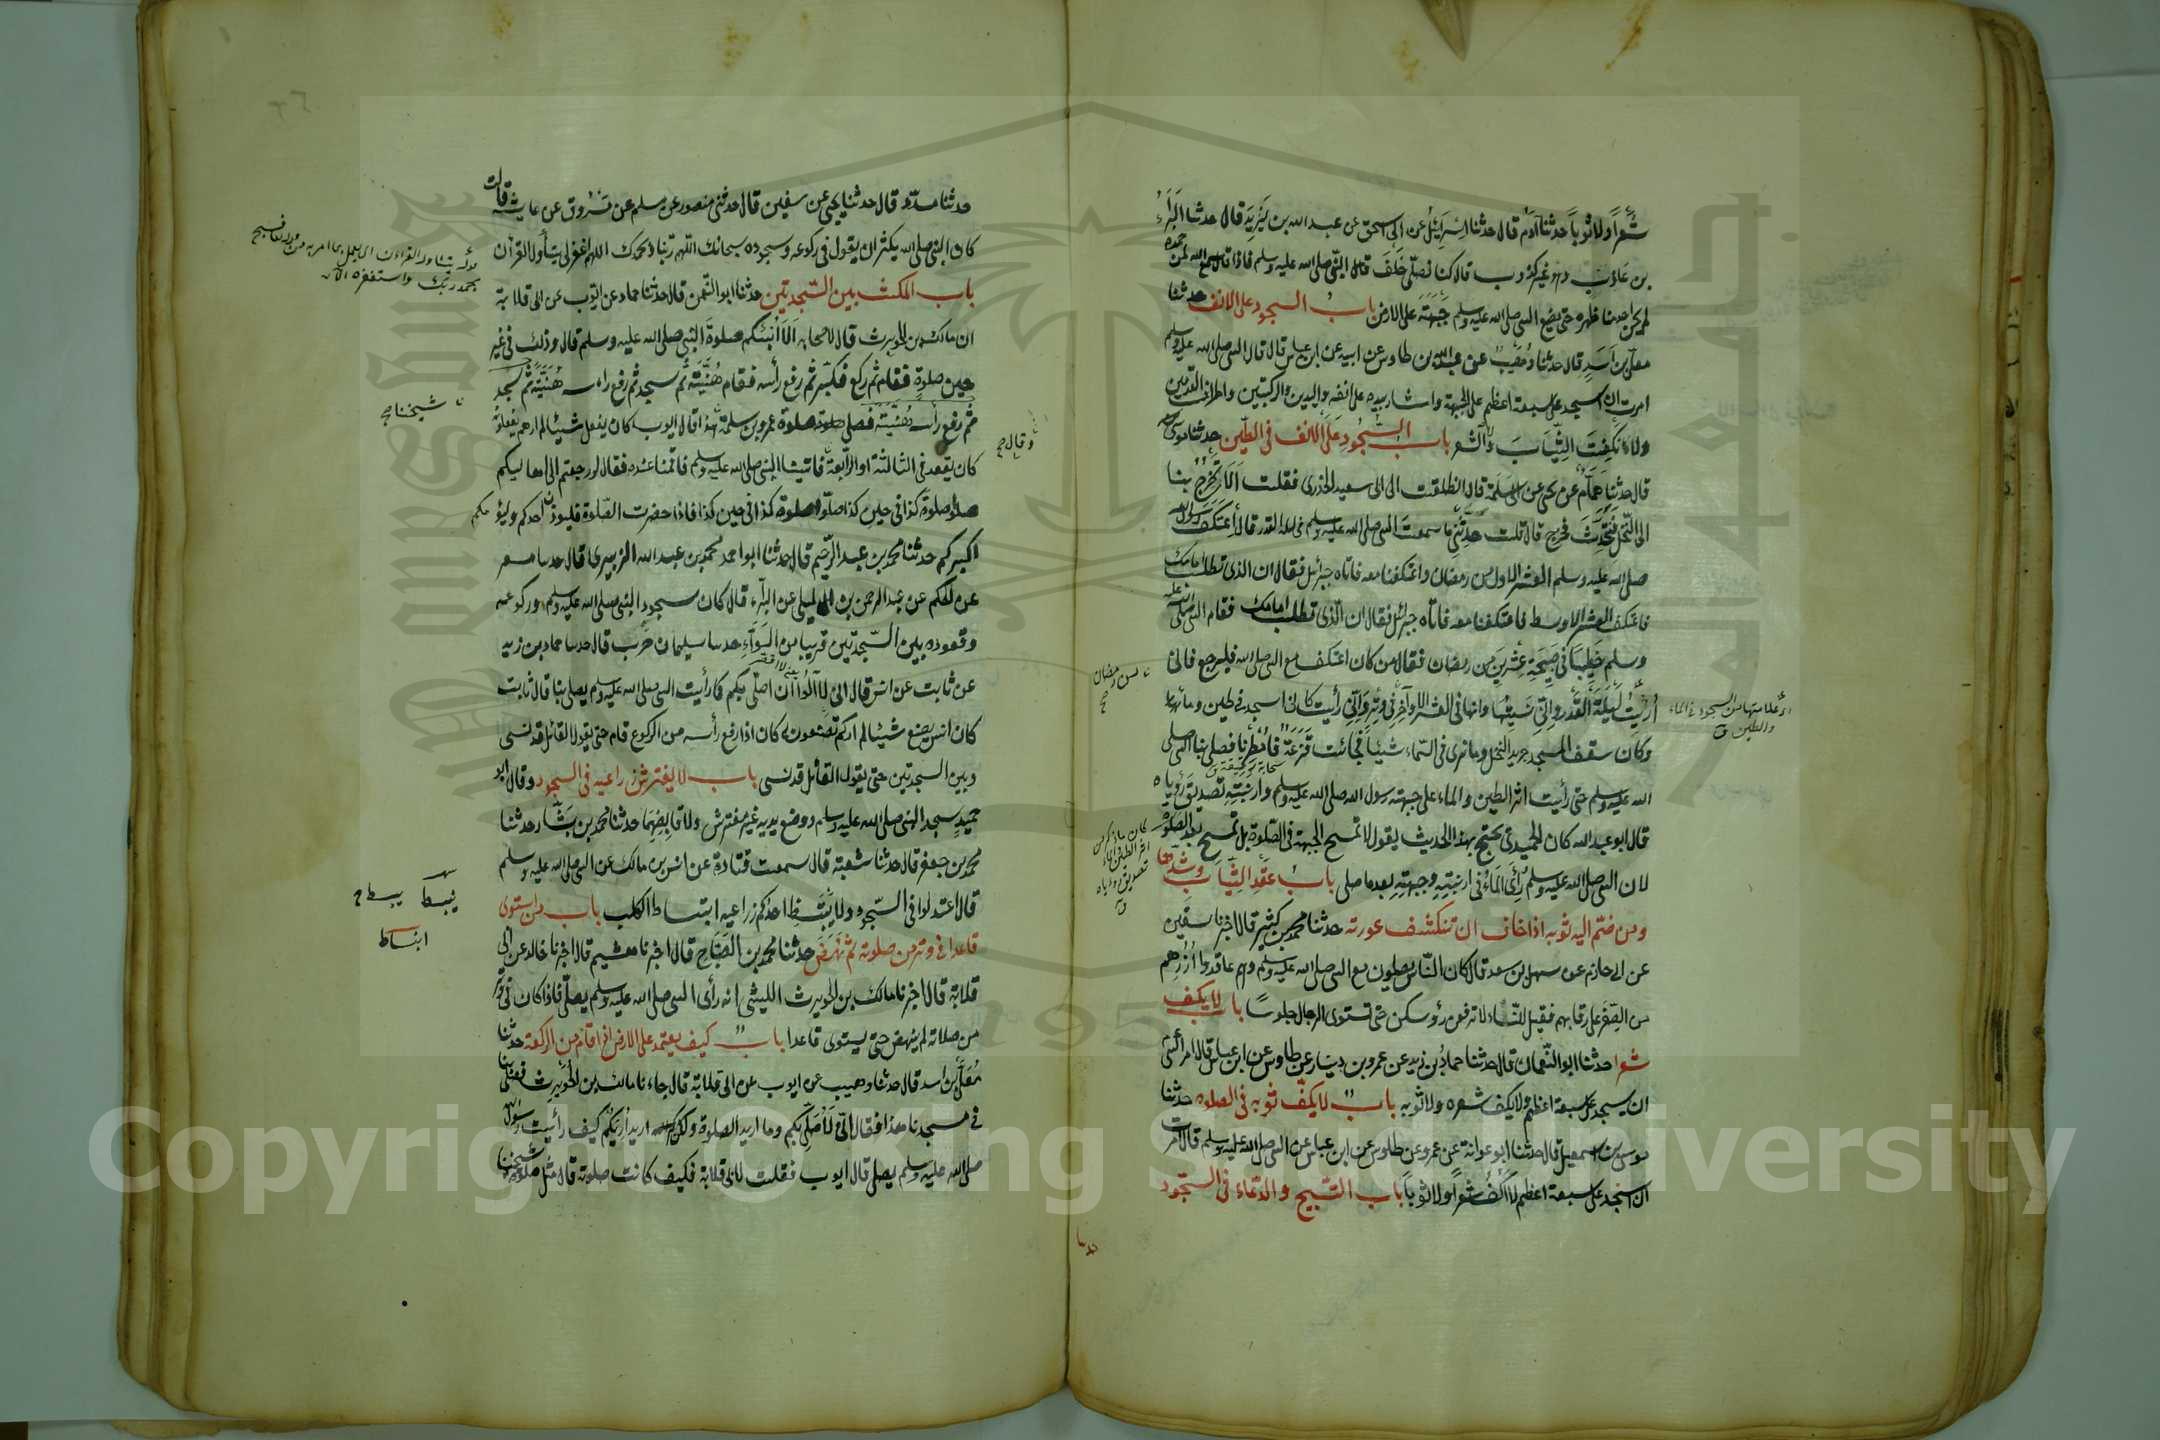 شعرا ولا ثوبا حدثنا آدم قال حدثنا اسرائيل عن ابى اسحق عن عبد الله بن يزيد قال حدثنا البراء
بن عازب وهو غير كذوب قال كنا نصلى خلف النبى صلى الله عليه وسلم فاذا قال سمع الله لمن حمده
لم يحن احد منا ظهره حتى يضع النبى صلى الله عليه وسلم جبهته على الارض باب السجود على الانف حدثنا
معلى بن اسد قال حدثنا وهيب عن عبد الله بن طاوس عن ابيه عن ابن عباس قال قال النبى صلى الله عليه وسلم
امرت ان اسجد على سبعة اعظم على الجبهة واشار بيده على انفه واليدين والركبتين واطراف القدمين
ولا نكفت الثياب والشعر باب السجود على الانف فى الطين حدثنا موسى
قال حدثنا همام عن يحيى عن ابى سلمة قال انطلقت الى ابى سعيد الخدرى فقلت الا تخرج بنا
الى النخل نتحدث فخرج قال قلت حدثنى ما سمعت النبى صلى الله عليه وسلم فى ليلة القدر قال اعتكف رسول الله
صلى الله عليه وسلم العشر الاول من رمضان واعتكفنا معه فاتاه جبرئيل فقال ان الذى تطلب امامك
فاعتكف العشر الاوسط فاعتكفنا معه فاتاه جبرئيل فقال ان الذى تطلب امامك فقام النبى صلى الله عليه
وسلم خطيبا فى صبيحة عشرين من رمضان فقال من كان اعتكف مع النبى صلى الله فليرجع فانى
اريت ليلة القدر وانى نسيتها وانها فى العشر الاواخر فى وتر وانى رأيت كانى اسجد فى طين وماء
وكان سقف المسجد جريد النخل وما نرى فى السماء شيئا فجاءت قزعة فامطرنا فصلى بنا النبى صلى
الله عليه وسلم حتى رأيت اثر الطين والماء على جبهة رسول الله صلى الله عليه وسلم وارنبته تصديق رؤياه
قال ابو عبد الله كان الحميدى يحتج بهذا الحديث يقول لا تمسح الجبهة فى الصلوة بل تمسح بعد الصلوة
لان النبى صلى الله عليه وسلم رأى الماء فى ارنبته وجبهته بعد ما صلى باب عقد الثياب وشدها
ومن ضم اليه ثوبه اذا خاف ان تنكشف عورته حدثنا محمد بن كثير قال اخبرنا سفين
عن ابى حازم عن سهل بن سعد قال كان الناس يصلون مع النبى صلى الله عليه وسلم وهم عاقدوا ازرهم
من الصغر على رقابهم فقيل للنساء لا ترفعن رؤسكن حتى تستوى الرجال جلوسا باب لا يكف
شعرا حدثنا ابو النعمان قال حدثنا حماد بن زيد عن عمرو بن دينار عن طاوس عن ابن عباس قال امر النبى
ان يسجد على سبعة اعظم ولا يكف شعره ولا ثوبه باب لا يكف ثوبه فى الصلوة حدثنا
موسى بن اسمعيل قال حدثنا ابو عوانة عن عمرو عن طاوس عن ابن عباس عن النبى صلى الله عليه وسلم قال امرت
ان اسجد على سبعة اعظم لا اكف شعرا ولا ثوبا باب التسبيح والدعاء فى السجود
من رمضان
حدثنا مسدد قال حدثنا يحيى عن سفين قال حدثنى منصور عن مسلم عن مسروق عن عايشة قالت
كان النبى صلى الله يكثر ان يقول فى ركوعه وسجوده سبحانك اللهم ربنا وبحمدك اللهم اغفر لى يتأول القرآن
باب المكث بين السجدتين حدثنا ابو النعمن قال حدثنا حماد عن ايوب عن ابى قلابة
ان مالك بن الحويرث قال لاصحابه الا انبئكم صلوة النبى صلى الله عليه وسلم قال وذلك فى غير
حين صلوة فقام ثم ركع فكبر ثم رفع رأسه فقام هنية ثم سجد ثم رفع راسه هنية ثم سجد
ثم رفع رأسه هنية فصلى صلوة عمرو بن سلمة هذا قال ايوب كان يفعل شيئا لم ارهم يفعلونه
كان يقعد فى الثالثة او الرابعة فاتينا النبى صلى الله عليه وسلم فاقمنا عنده فقال لو رجعتم الى اهاليكم
صلوا صلوة كذا فى حين كذا صلوا صلوة كذا فى حين كذا فاذا حضرت الصلوة فليوذن احدكم وليؤمكم
اكبركم حدثنا محمد بن عبد الرحيم قال حدثنا ابو احمد محمد بن عبد الله الزبيرى قال حدثنا مسعر
عن الحكم عن عبد الرحمن بن ابى ليلى عن البراء قال كان سجود النبى صلى الله عليه وسلم وركوعه
وقعوده بين السجدتين قريبا من السواء حدثنا سليمان حرب قال حدثنا حماد بن زيد
عن ثابت عن انس قال انى لا آلوا ان اصلى بكم كما رأيت النبى صلى الله عليه وسلم يصلى بنا قال ثابت
كان انس يصنع شيئا لم اركم تصنعونه كان اذا رفع رأسه من الركوع قام حتى يقول القائل قد نسى
وبين السجدتين حتى يقول القائل قد نسى باب لا يفترش ذراعيه فى السجود وقال ابو
حميد سجد النبى صلى الله عليه وسلم ووضع يديه غير مفترش ولا قابضهما حدثنا محمد بن بشار حدثنا
محمد بن جعفر قال حدثنا شعبة قال سمعت قتادة عن انس بن مالك عن النبى صلى الله عليه وسلم
قال اعتدلوا فى السجود ولا يبسط احدكم ذراعيه انبساط الكلب باب من استوى
قاعدا فى وتر من صلوته ثم نهض حدثنا محمد بن الصباح قال اخبرنا هشيم قال اخبرنا خالد عن ابى
قلابة قال اخبرنا مالك بن الحويرث الليثى انه رأى النبى صلى الله عليه وسلم يصلى فاذا كان فى وتر
من صلاته لم ينهض حتى يستوى قاعدا باب كيف يعتمد على الارض اذا قام من الركعة حدثنا
معلى بن اسد قال حدثنا وهيب عن ايوب عن ابى قلابة قال جاءنا مالك بن الحويرث فصلى بنا
فى مسجدنا هذا فقال انى لاصلى بكم وما اريد الصلوة ولكن اريد اريكم كيف رأيت رسول الله
صلى الله عليه وسلم يصلى قال ايوب فقلت لابى قلابة فكيف كانت صلوته قال مثل صلوة شيخنا
شيخنا
وقال
يبسط
ابتساط
King Saud University
1957
Copyright © King Saud University